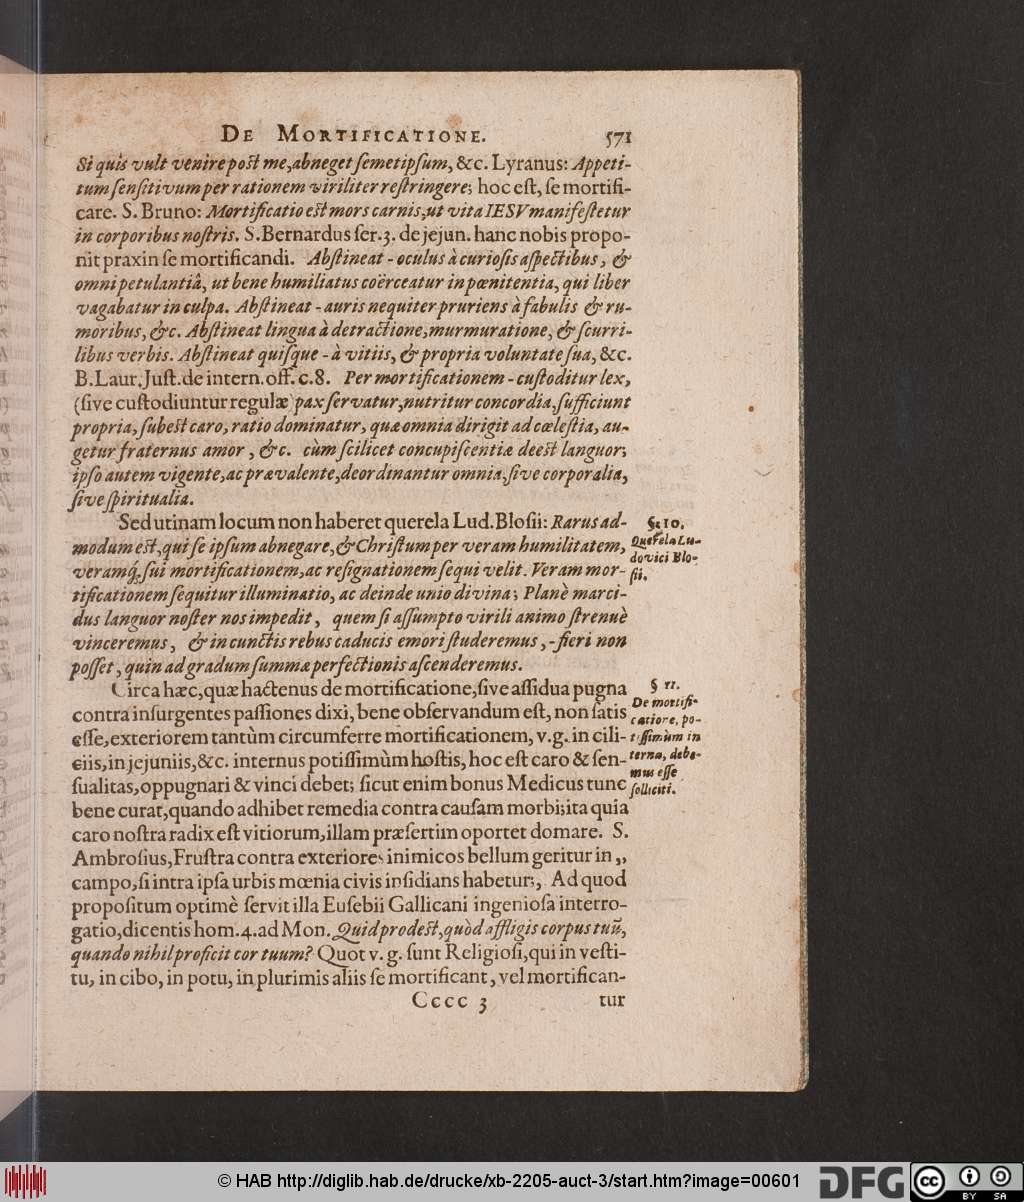 DE MORTIFICATIONE. 571
Si quis vult venire post me, abneget semetipsum, &c. Lyranus: Appeti-
tum sensitivum per rationem viriliter restringere; hoc est, se mortifi-
care. S. Bruno: Mortificatio est mors carnis, ut vita IESV manifestetur
in corporibus nostris. S. Bernardus ser. 3. de jejun. hanc nobis propo-
nit praxin se mortificandi. Abstineat - oculus à curiosis aspectibus, &
omni petulantiâ, ut bene humiliatus coërceatur in pœnitentia, qui liber
vagabatur in culpa. Abstineat - auris nequiter pruriens à fabulis & ru-
moribus, &c. Abstineat lingua à detractione, murmuratione, & scurri-
libus verbis. Abstineat quisque - à vitiis, & propria voluntate sua, &c.
B. Laur. Just. de intern. off. c. 8. Per mortificationem - custoditur lex,
(sive custodiuntur regulæ) pax servatur, nutritur concordia, sufficiunt
propria, subest caro, ratio dominatur, quæ omnia dirigit ad cœlestia, au-
getur fraternus amor, &c. cùm scilicet concupiscentiæ deest languor;
ipso autem vigente, ac prævalente, deordinantur omnia, sive corporalia,
sive spiritualia.
Sed utinam locum non haberet querela Lud. Blosii: Rarus ad-
modum est, qui se ipsum abnegare, & Christum per veram humilitatem,
veramq́; sui mortificationem, ac resignationem sequi velit. Veram mor-
tificationem sequitur illuminatio, ac deinde unio divina; Planè marci-
dus languor noster nos impedit, quem si assumpto virili animo strenuè
vinceremus, & in cunctis rebus caducis emori studeremus, - fieri non
posset, quin ad gradum summæ perfectionis ascenderemus.
§. 10.
Querela Lu-
dovici Blo-
sii.
Circa hæc, quæ hactenus de mortificatione, sive assidua pugna
contra insurgentes passiones dixi, bene observandum est, non satis
esse, exteriorem tantùm circumferre mortificationem, v. g. in cili-
ciis, in jejuniis, &c. internus potissimùm hostis, hoc est caro & sen-
sualitas, oppugnari & vinci debet; sicut enim bonus Medicus tunc
bene curat, quando adhibet remedia contra causam morbi; ita quia
caro nostra radix est vitiorum, illam præsertim oportet domare. S.
Ambrosius, Frustra contra exteriores inimicos bellum geritur in „
campo, si intra ipsa urbis mœnia civis insidians habetur;, Ad quod
propositum optimè servit illa Eusebii Gallicani ingeniosa interro-
gatio, dicentis hom. 4. ad Mon. Quid prodest, quòd affligis corpus tuũ,
quando nihil proficit cor tuum? Quot v. g. sunt Religiosi, qui in vesti-
tu, in cibo, in potu, in plurimis aliis se mortificant, vel mortifican-
§ 11.
De mortifi-
catione, po-
tissimùm in
terna, debe-
mus esse
solliciti.
Cccc 3 tur
© HAB http://diglib.hab.de/drucke/xb-2205-auct-3/start.htm?image=00601
DFG
cc
BY SA